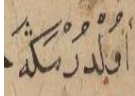 اُولْدُرْمَكَهْ